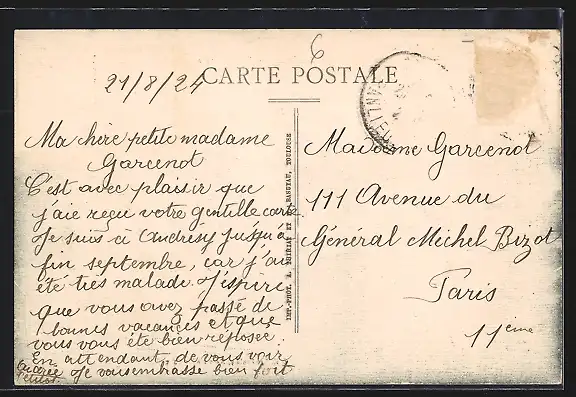 6
21/8/24
CARTE POSTALE
Ma chère petite madame
Garcenot
C'est avec plaisir que
j'aie reçu votre gentille carte.
Je suis à Andrésy jusqu'à
fin septembre, car j'ai
été très malade. J'espère
que vous avez passé de
bonnes vacances et que
vous vous ête bien reposée.
En attendant de vous voir
Je vous embrasse bien fort
Andrée
IMP.-PHOT. A. THIRIAT ET BASUYAU, TOULOUSE
Madame Garcenot
111 Avenue du
Général Michel Bizot
Paris
11ème